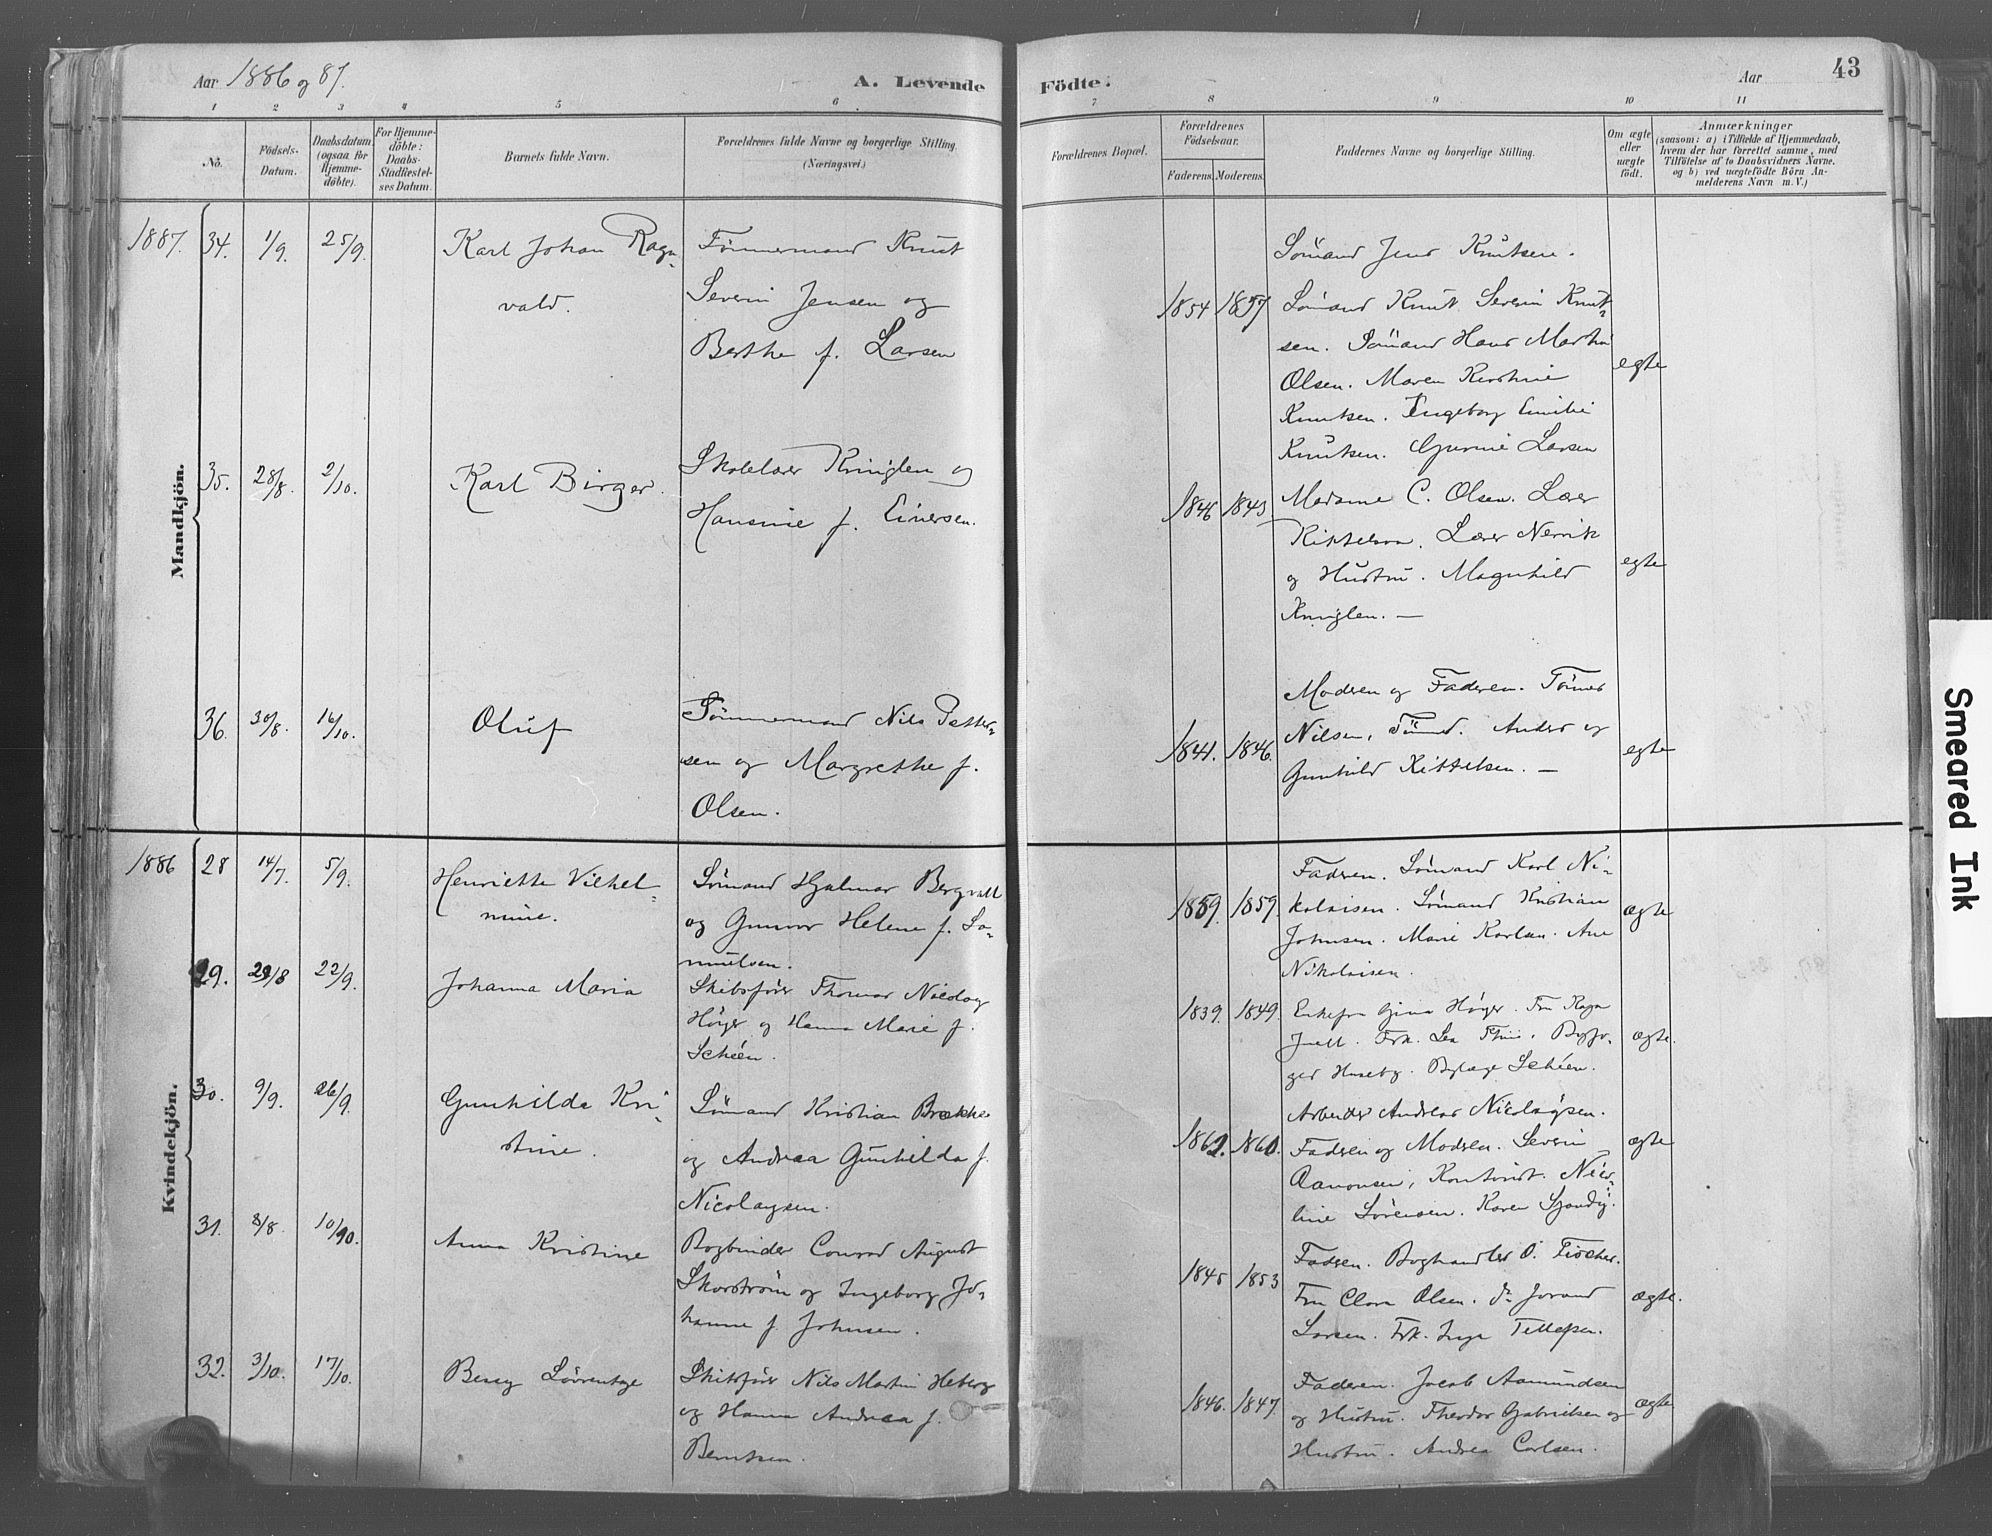 Aar 1886 og 87.
A. Levende Födte.
Aar
43
1 2 3 4 5 6 7 8 9 10 11
No.
Födsels-Datum.
Daabsdatum (ogsaa for Hjemmedöbte).
For Hjemmedöbte: Daabs-Stadfæstelses Datum.
Barnets fulde Navn.
Forældrenes fulde Navne og borgerlige Stilling. (Næringsvei.)
Forældrenes Bopæl.
Forældrenes Födselsaar.
Faderens. Moderens.
Faddernes Navne og borgerlige Stilling.
Om ægte eller uægte födt.
Anmærkninger
(saasom: a) i Tilfælde af Hjemmedaab, hvem der har forrettet samme, med Tilföielse af to Daabsvidners Navne. og b) ved uægtefödte Börn Anmelderens Navn m. V.)
Mandkjön.
1887. 34. 1/9. 25/9.
Karl Johan Ragn-
vald.
Tømmermand Knut
Severin Jensen og
Berthe f. Larsen
1854 1857
Sømand Jens Knutsen.
Sømand Knut Severin Knut-
sen. Sømand Hans Martin
Olsen. Maren Kirstine
Knutsen. Ingeborg Emilie
Knutsen. Gurine Larsen
egte
35. 28/8. 2/10.
Karl Birger.
Skolelærer Kringlen og
Hansine f. Einersen.
1846 1843.
Madame C. Olsen. Lærer
Kittelsen. Lærer Nervik
og Hustru. Magnhild
Kringlen. —
egte
36. 30/8. 16/10.
Oluf
Tømmermand Nils Petter-
sen og Margrethe f.
Olsen.
1841. 1846.
Moderen og Faderen. Tømer
Nilsen, Tømd. Anders og
Gunhild Kittelsen. —
egte
Kvindekjön.
1886 28 14/7. 5/9.
Henriette Vilhel-
mine.
Sømand Hjalmar Bergvall
og Gunvor Helene f. Sa-
muelsen.
1859. 1859.
Faderen. Sømand Karl Ni-
kolaisen. Sømand Kristian
Johnsen. Marie Karlsen. Ane
Nikolaisen.
ægte
29. 29/8 22/9.
Johanna Maria
Skibsfører Thomas Nicolay
Høyer og Hanna Marie f.
Schéen.
1839. 1849.
Enkefru Gina Høyer. Fru Kaja
Juell. Frk. Lea Thiis. Byfo-
ged Huseby. Bylæge Schéen.
ægte.
30. 9/9. 26/9.
Gunhilda Kri-
stine.
Sømand Kristian Brekke
og Andrea Gunhilda f.
Nicolaysen.
1862. 1860.
Arbeider Andreas Nicolaysen.
Faderen og Moderen. Severin
Aanonsen, Kontorist. Nico-
line Sørensen. Karen
ægte
31. 8/8. 10/10.
Anna Kristine
Bogbinder Conrad August
Skarstrøm og Ingeborg Jo-
hanne f. Johnsen.
1845 1853
Faderen. Boghandler O. Fischer.
Fru Clara Olsen. do Jorand
Larsen. Frk. Inga Tellefsen.
ægte.
32. 3/10. 17/10.
Bessy Lovrentze
Skibsfører Nils Martin Heberg
og Hanna Andrea f.
Berntsen.
1846. 1847.
Faderen. Jacob Aamundsen
og Hustru. Theodor Gabrielsen og
Hustru. Andrea Carlsen.
ægte
Smeared Ink